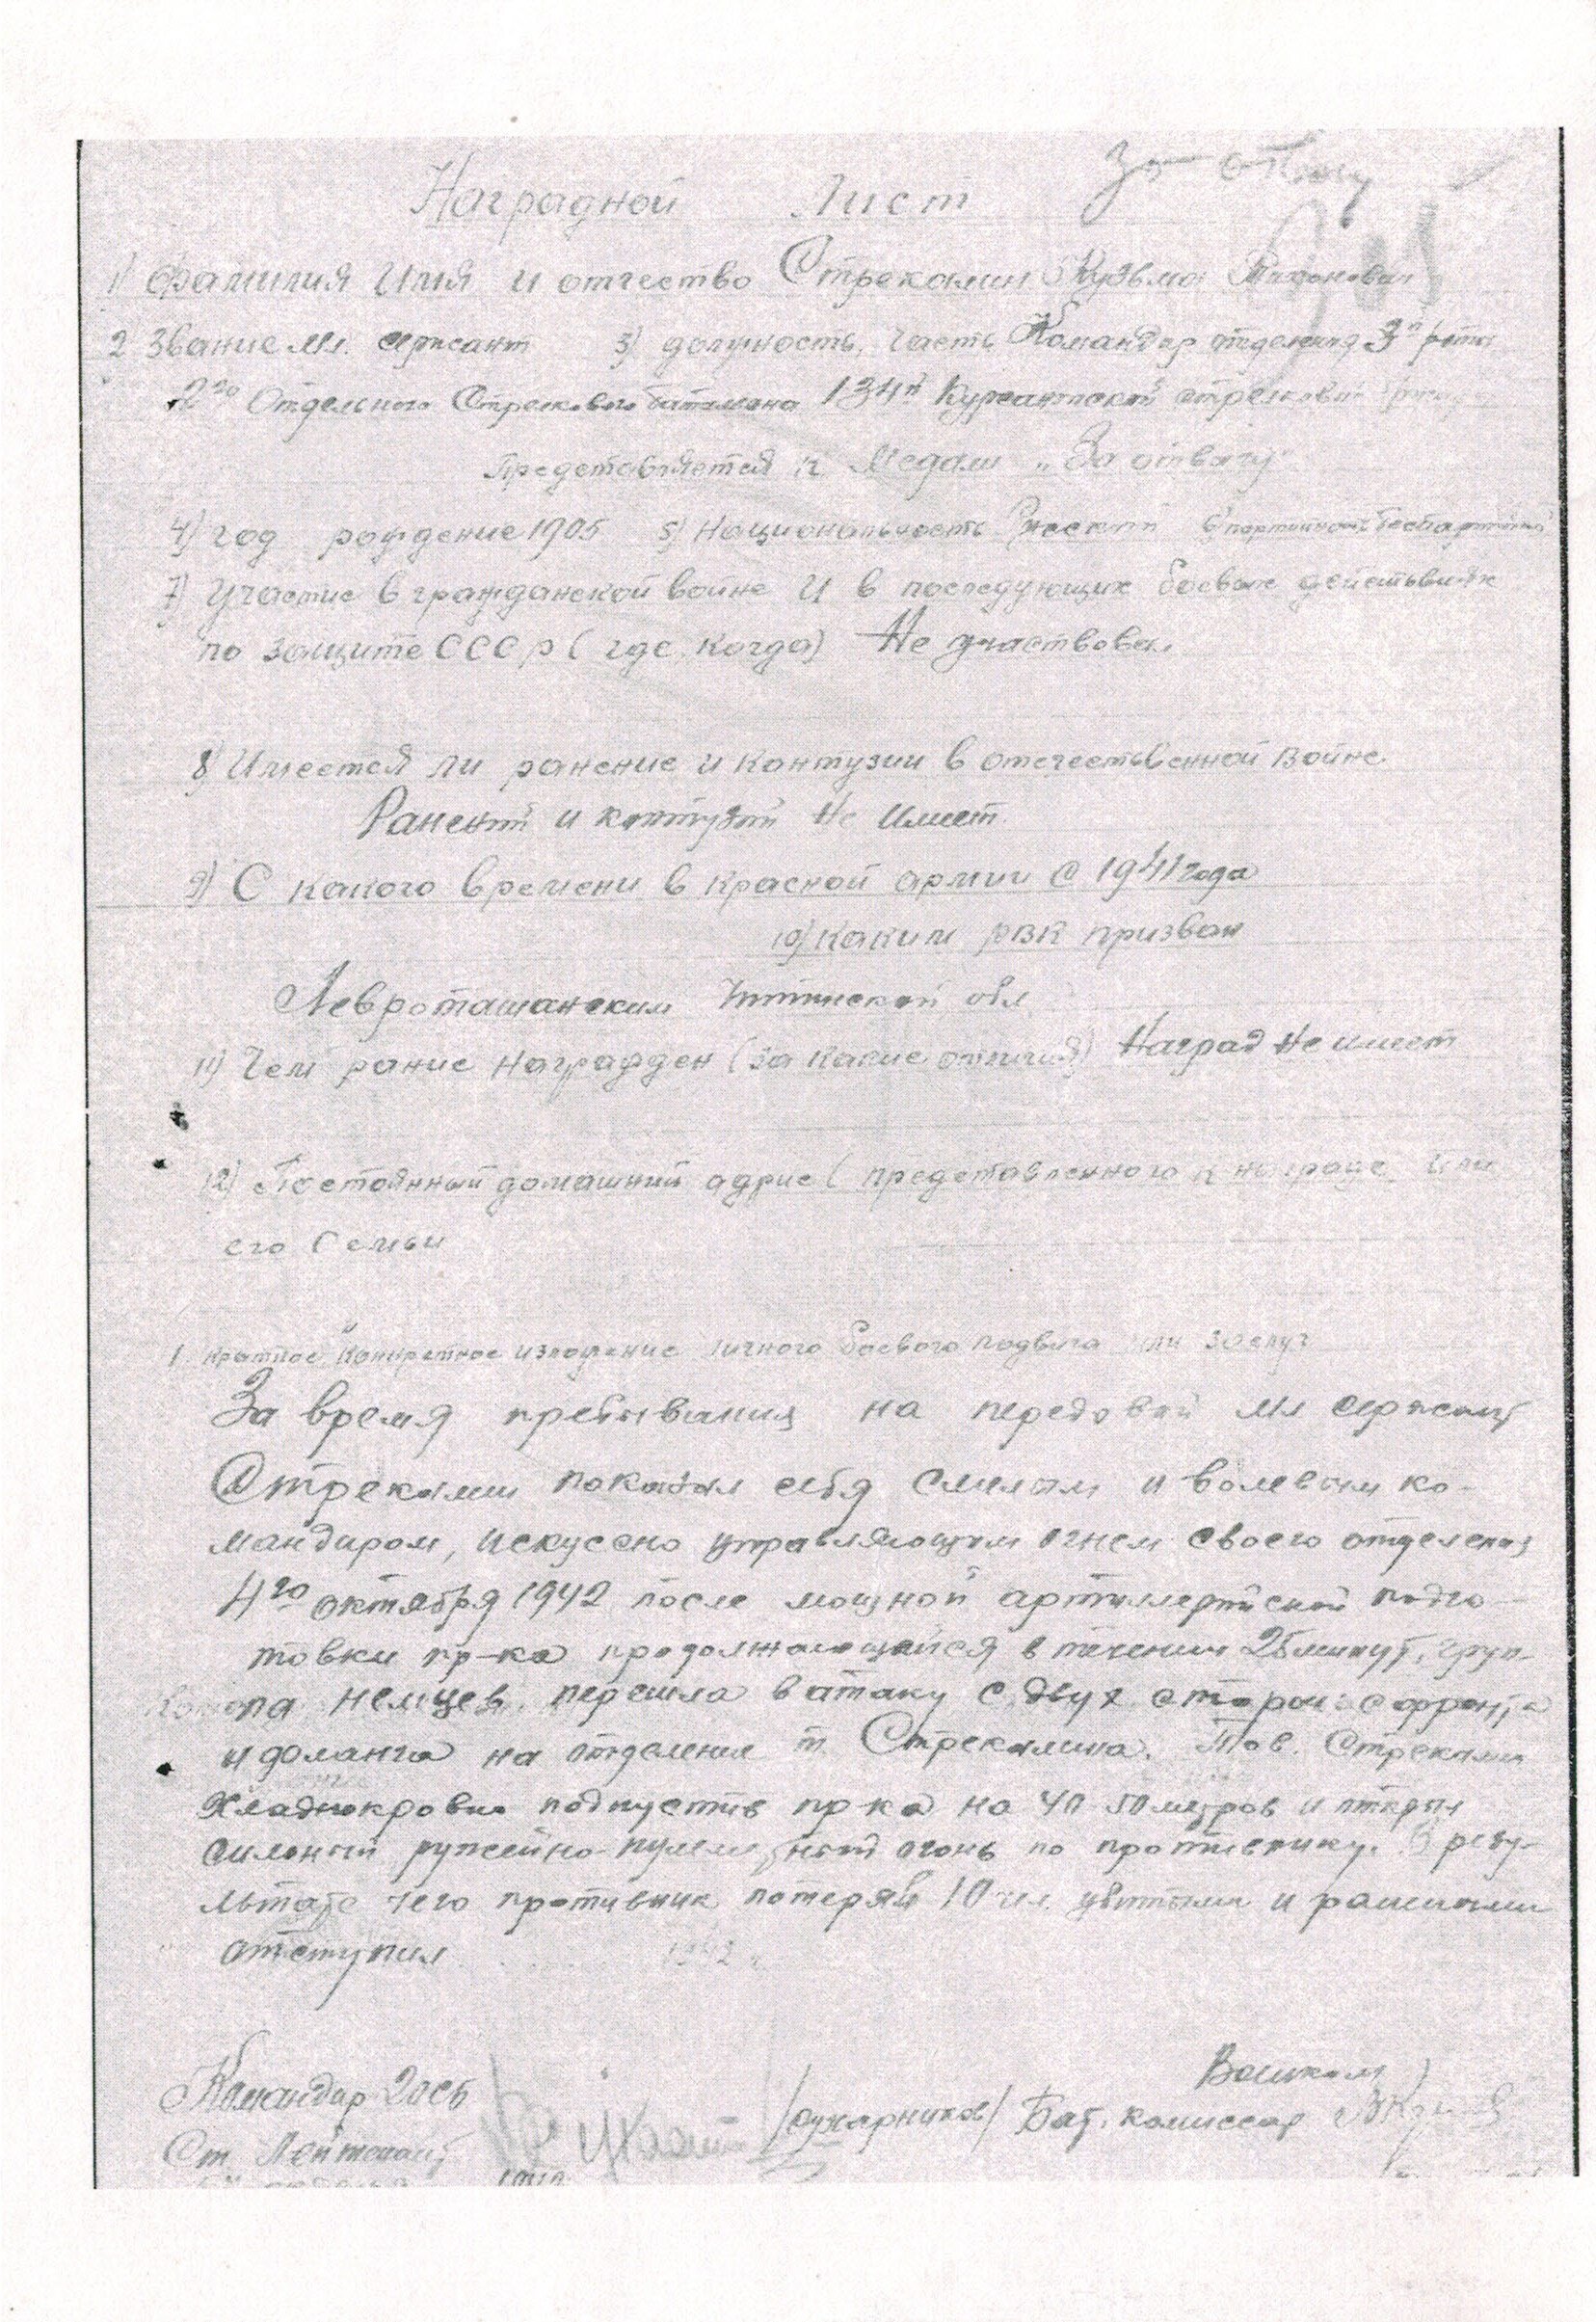 За отвагу
Наградной Лист
1) Фамилия Имя и отчество Стрекалин Кузьма
2 Звание мл. сержант 3) должность, часть Командир отделения 3й роты
2го Отдельного Стрелкового батальона 134й Курсантской стрелковой
Представляется к Медали „За отвагу"
4) год рождение 1905 5) Национальность Русский 6) партийность беспартийный
7) Участие в гражданской войне И в последующих боевых действиях
по защите СССР (где, когда) Не участвовал
8) Имеется ли ранение и контузии в отечественной войне
Ранений и контузий Не имеет.
9) С какого времени в красной армии С 1941 года
10) Каким РВК призван
Читинской обл
11) Чем рание награжден (за какие отличия) Наград Не имеет
12) Постоянный домашний адрис (представленного к награде или
его семьи
1. Краткое, Конкретное изложение личного боевого подвига или заслуг
За время пребывания на передовой мл сержант
Стрекалин показал себя смелым и волевым ко-
мандиром, искусено управляющим огнем своего отделения
4го октября 1942 после мощной артиллерийской подго-
товки пр-ка продолжающейся в течении 25 минут, груп-
па немцев, перешла в атаку с двух сторон с фронта
и фланга на отделения т. Стрекалина. Тов. Стрекалин
Хладнокровно подпустив пр-ка на 40-50 метров и открыл
сильный ружейно-пулеметный огонь по противнику. В резу-
льтате чего противник потеряв 10 чел. убитыми и ранеными
отступил
Командир 2осб
Ст. Лейтенант
Военком
Бат. комиссар